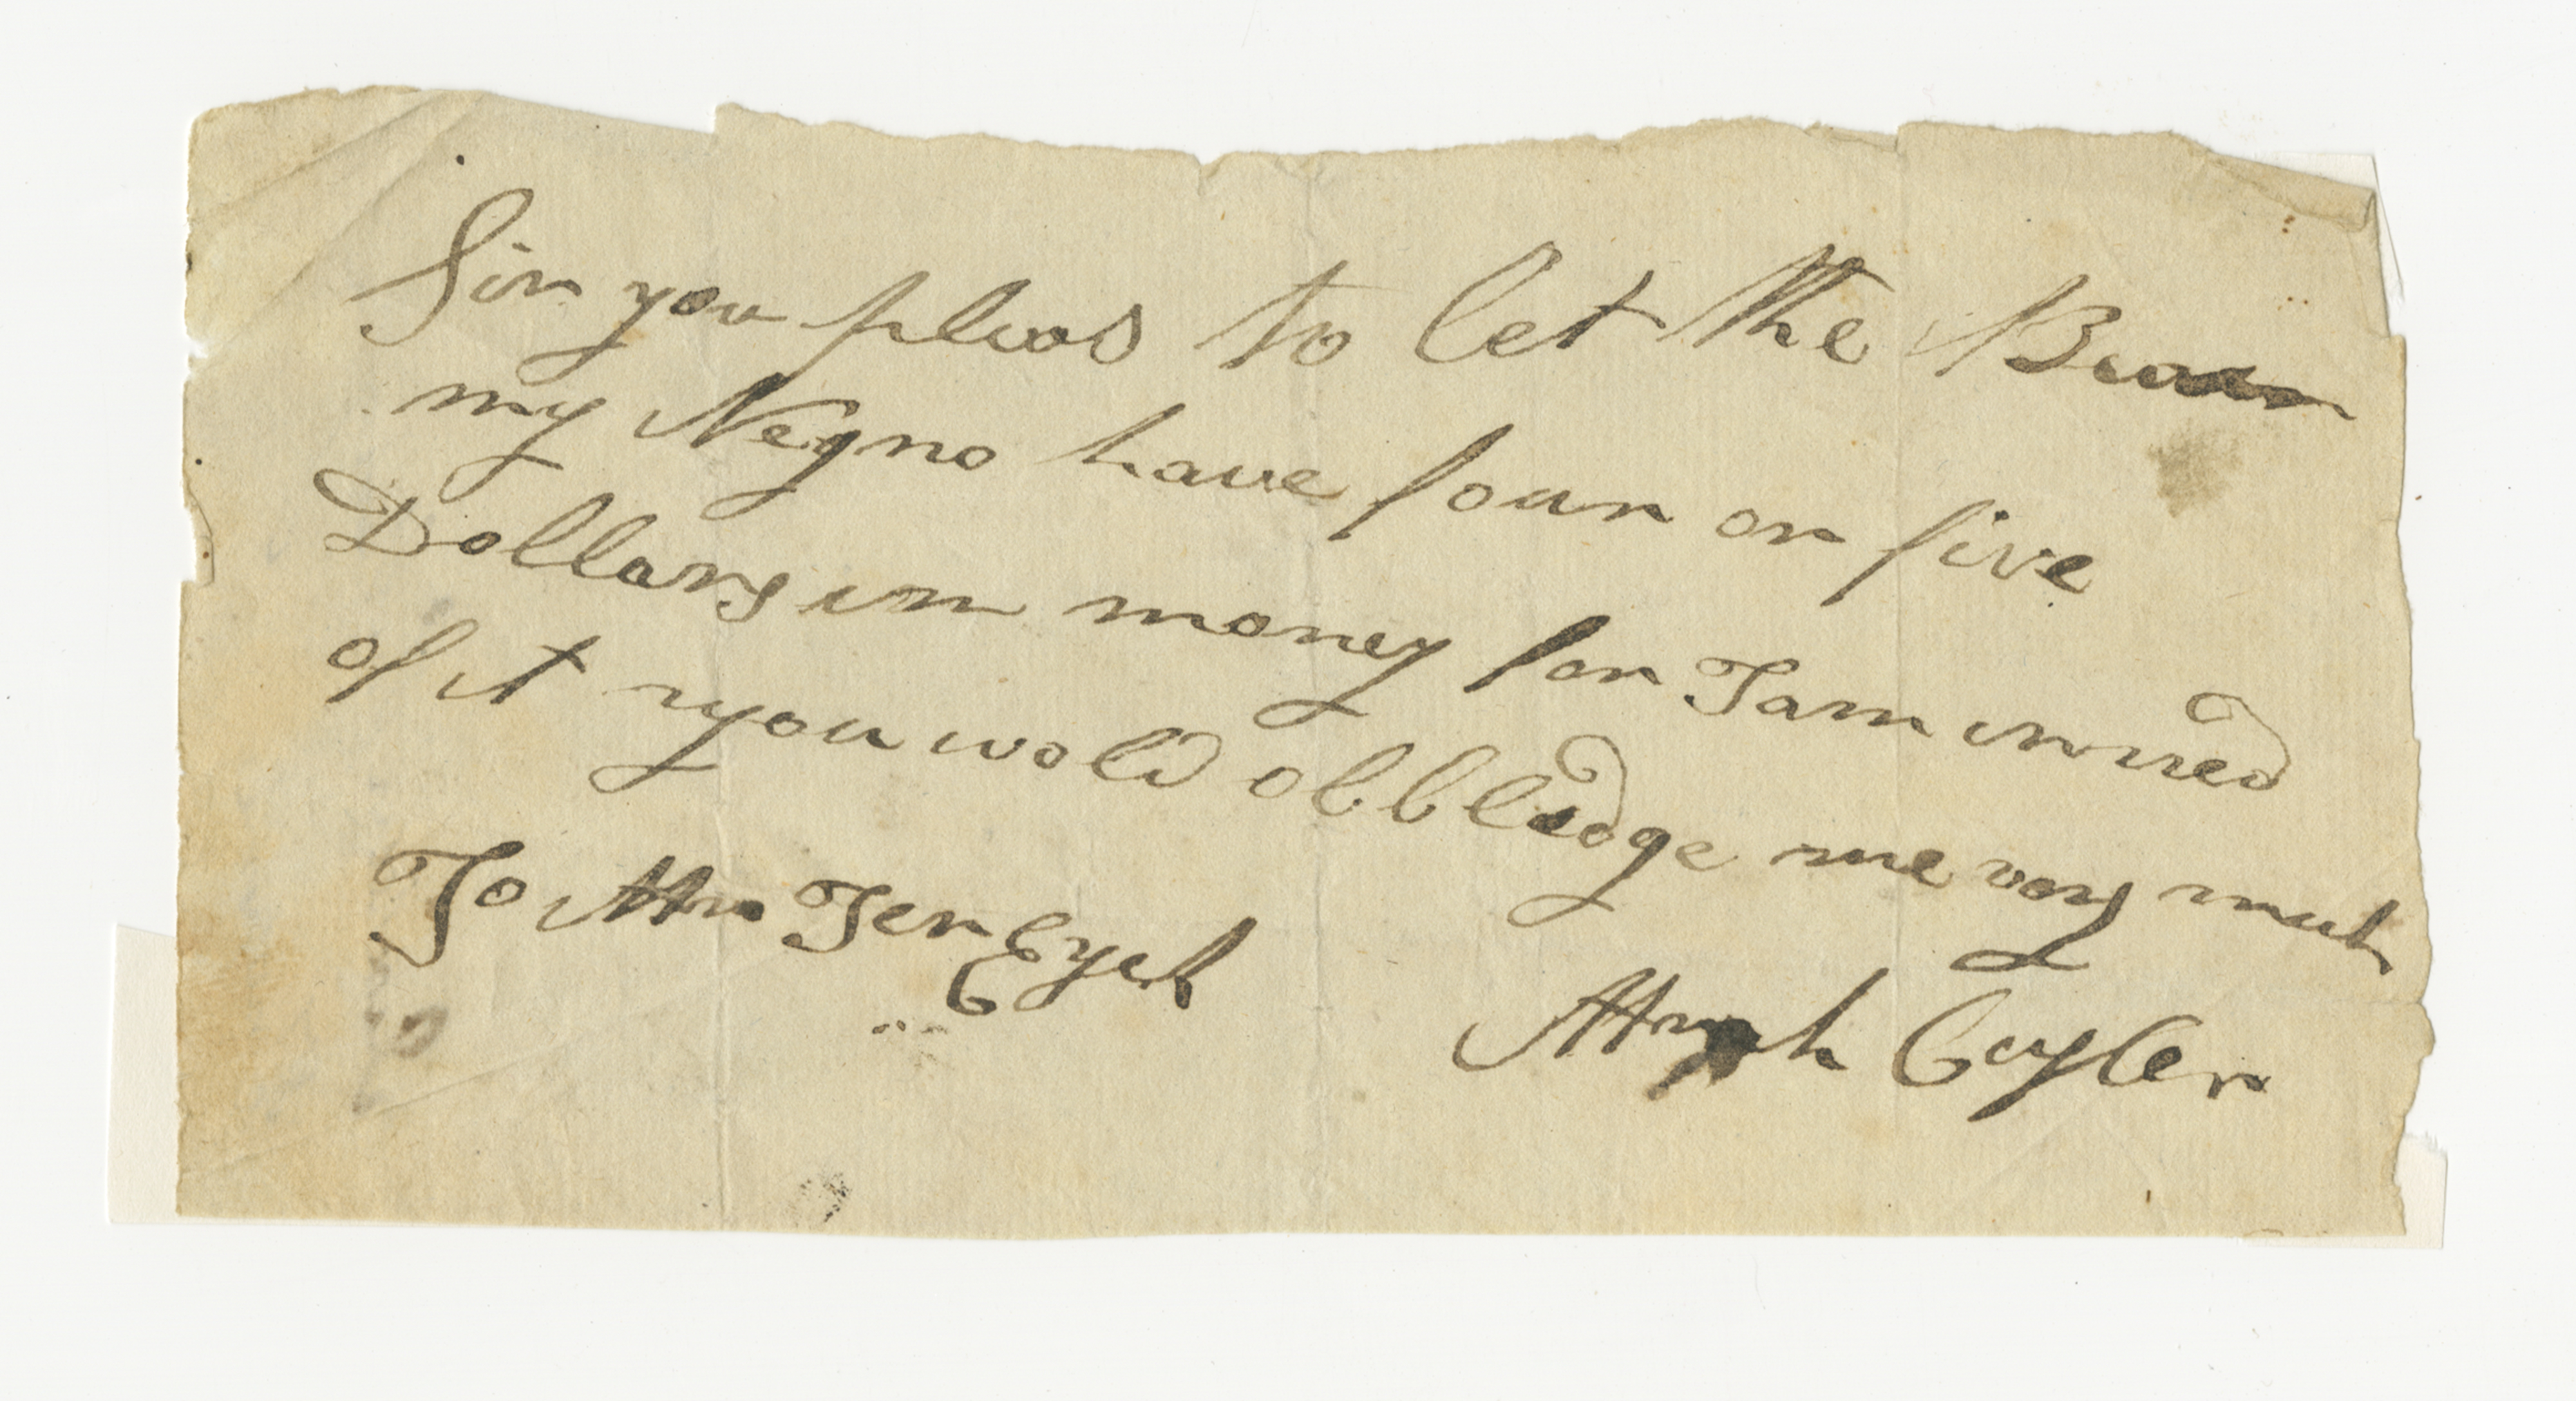 Sir you pleas to let the
my Negro have four or five
Dollars in money for I am in need
of it you wold obblidge me very much
To Mr Ten Eyck
Cuyler